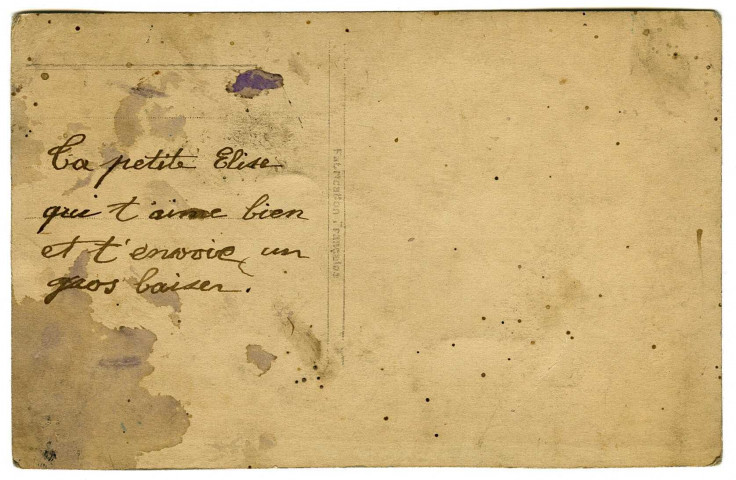 Ta petite Elise
qui t'aime bien
et t'envoie un
gros baiser.
Fabrication Française